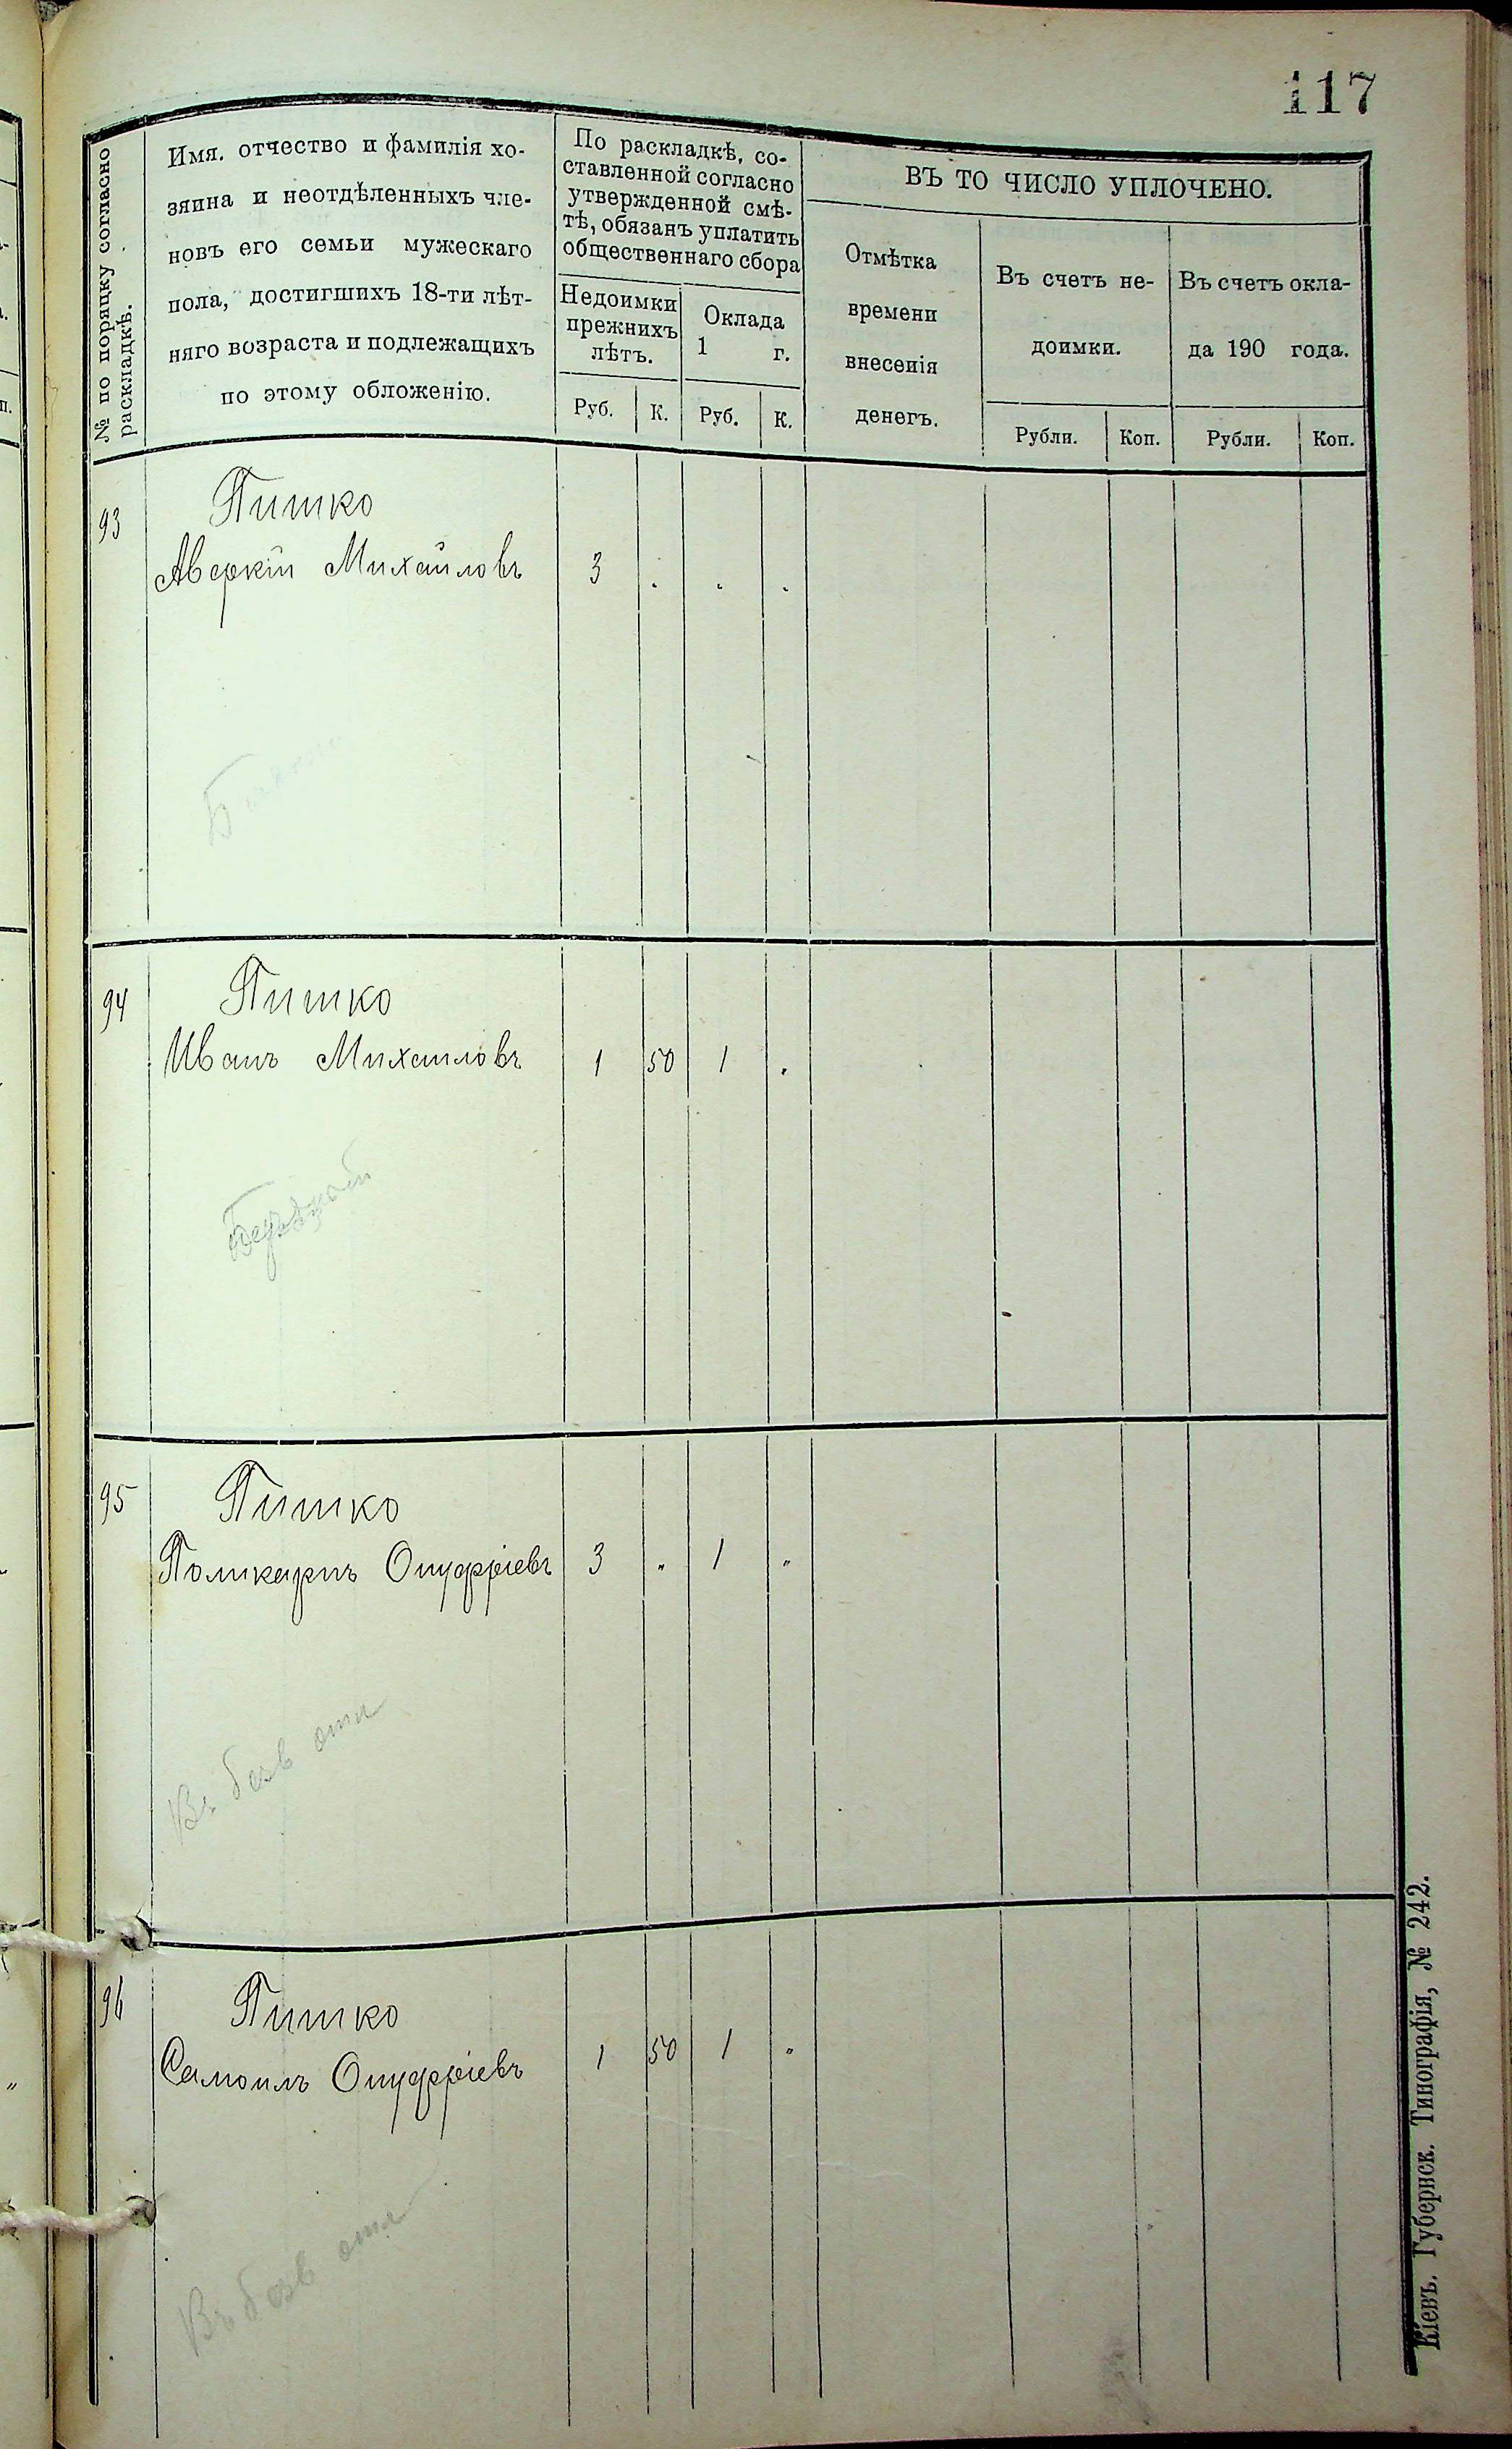 117
№ по порядку согласно
раскладкѣ.
Имя. отчество и фамилія хо-
зяина и неотдѣленныхъ чле-
новъ его семьи мужескаго
пола, достигшихъ 18-ти лѣт-
няго возраста и подлежащихъ
по этому обложенію.
По раскладкѣ, со-
ставленной согласно
утвержденной смѣ-
тѣ, обязанъ уплатить
общественнаго сбора
Недоимки
прежнихъ
лѣтъ.
Оклада
1 г.
Руб. К. Руб. К.
ВЪ ТО ЧИСЛО УПЛОЧЕНО.
Отмѣтка
времени
внесенія
денегъ.
Въ счетъ не-
доимки.
Въ счетъ окла-
да 190 года.
Рубли. Коп. Рубли. Коп.
93 Пишко
Аверкій Михайловъ 3 . . .
94 Пишко
Иванъ Михаиловъ 1 50 1 .
95 Пишко
Поликарпъ Онуфріевъ 3 „ 1 „
Въ безв отл
96 Пишко
Самоилъ Онуфріевъ 1 50 1 „
Въ безв отл
Кіевъ. Губернск. Типографія, № 242.